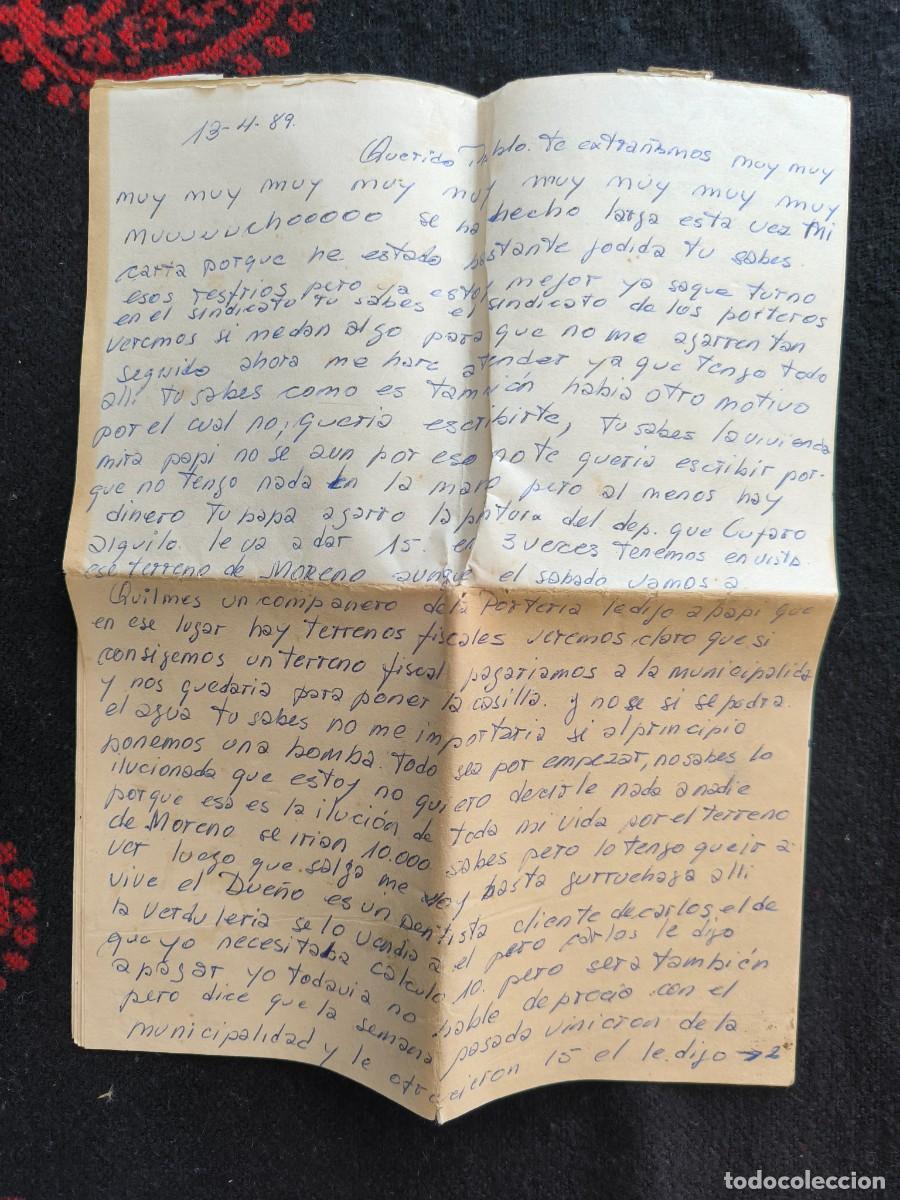 13-4-89.
Querido Pablo. te extrañamos muy muy
muy muy muy muy muy muy muy muy muy
muuuuuchooooo se ha hecho larga esta vez Mi
carta porque he estado bastante jodida tu sabes
esos resfrios pero ya estoy mejor ya saque turno
en el sindicato tu sabes el sindicato de los porteros
veremos si me dan algo para que no me agarren tan
seguido ahora me hare atender ya que tengo todo
alli tu sabes como es tambien habia otro motivo
por el cual no, queria escribirte, tu sabes la vivienda
mira papi no se aun por eso no te queria escribir por-
que no tengo nada en la mano pero al menos hay
dinero tu papa agarro la pintura del dep. que Cufaro
alquilo le va a dar 15. en 3 veces tenemos en vista
ese terreno de Moreno aunque el sabado vamos a
Quilmes un companero de la Porteria le dijo a papi que
en ese lugar hay terrenos fiscales veremos claro que si
consigemos un terreno fiscal pagariamos a la municipalida
y nos quedaria para poner la casilla. y no se si se podra.
el agua tu sabes no me importaria si al principio
ponemos una bomba. todo sea por empezar, no sabes lo
ilucionada que estoy no quiero decirle nada a nadie
porque esa es la ilución de toda mi vida por el terreno
de Moreno se irian 10.000 sabes pero lo tengo que ir a
ver luego que salga me voy hasta gurruchaga alli
vive el Dueño es un Dentista cliente de carlos, el de
la verduleria se lo vendia a el pero carlos le dijo
que yo necesitaba calculo 10. pero sera también
a pagar yo todavia no hable de precio con el
pero dice que la semana pasada vinieron de la
municipalidad y le ofrecieron 15 el le dijo → 2
todocoleccion